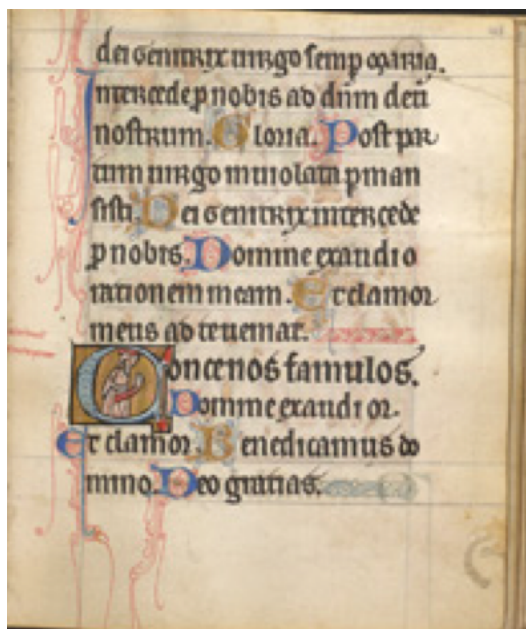 dei genitrix uirgo semp maria.
Intercede p nobis ad dnm deu
nostrum. Gloria. Post par
tum uirgo inuiolata pman
sisti. Dei genitrix intercede
p nobis. Domine exaudi o
rationem meam. Et clamor
meus ad te ueniat.
Concenos famulos.
Domine exaudi or.
Et clamor. Benedicamus do
mino. Deo gratias.